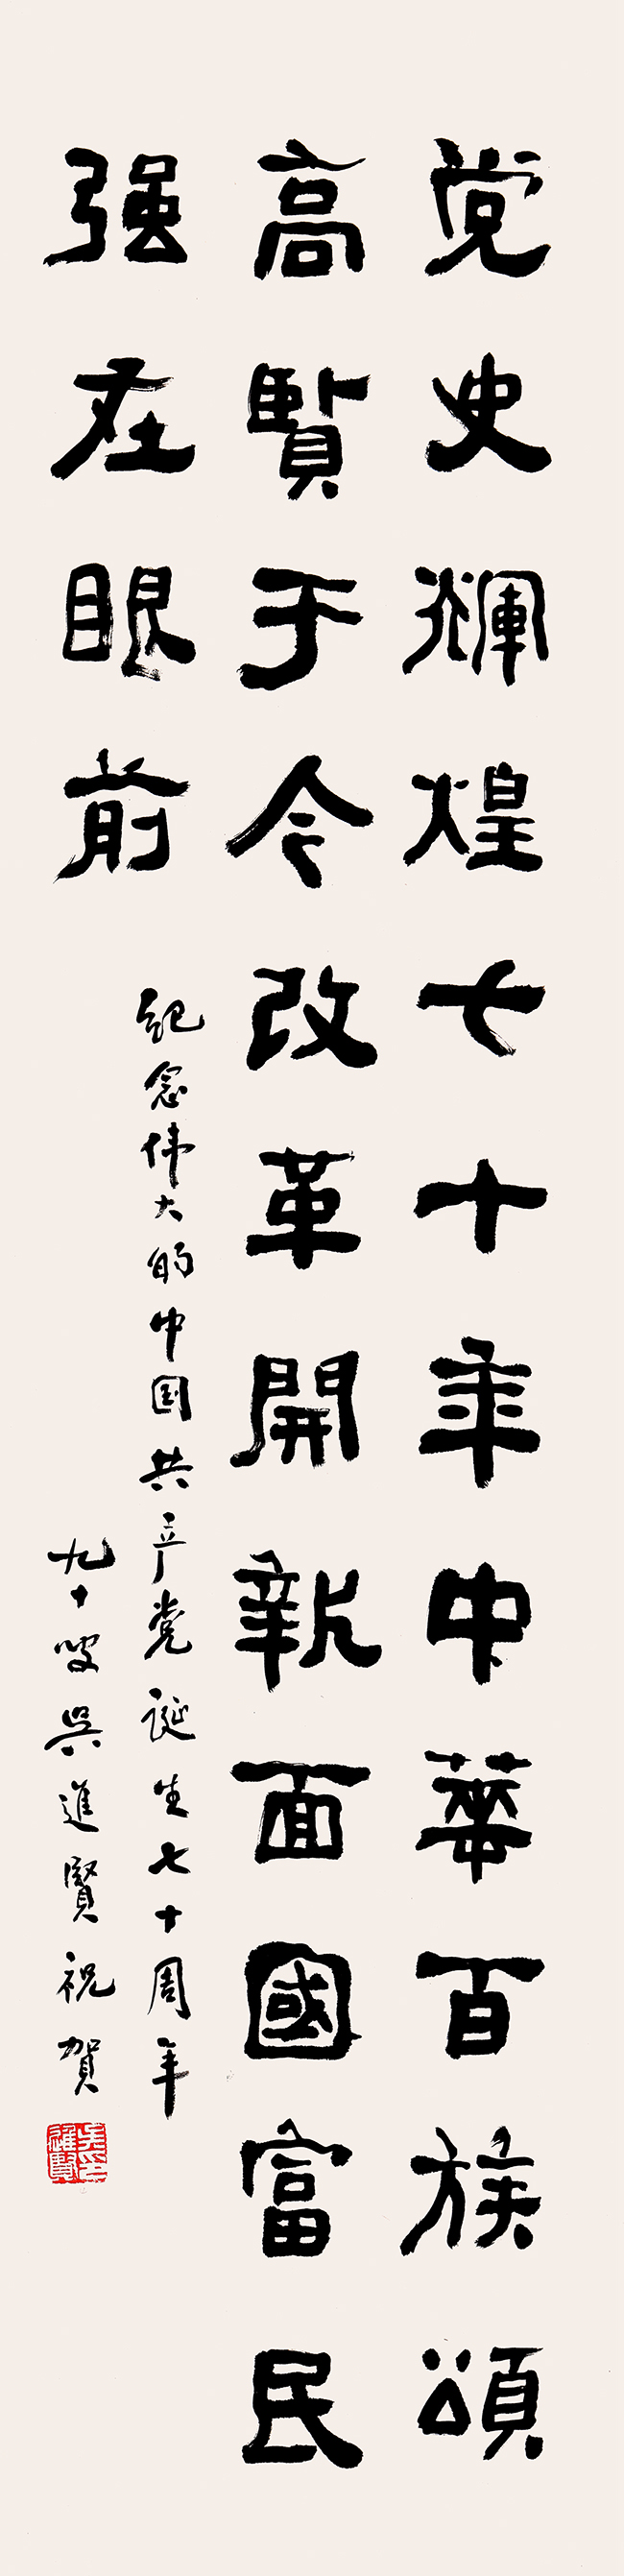 党史輝煌七十年中華百族頌
高賢于今改革開新面國富民
强在眼前
纪念伟大的中国共产党诞生七十周年
九十叟吳進賢祝賀
吴進賢印